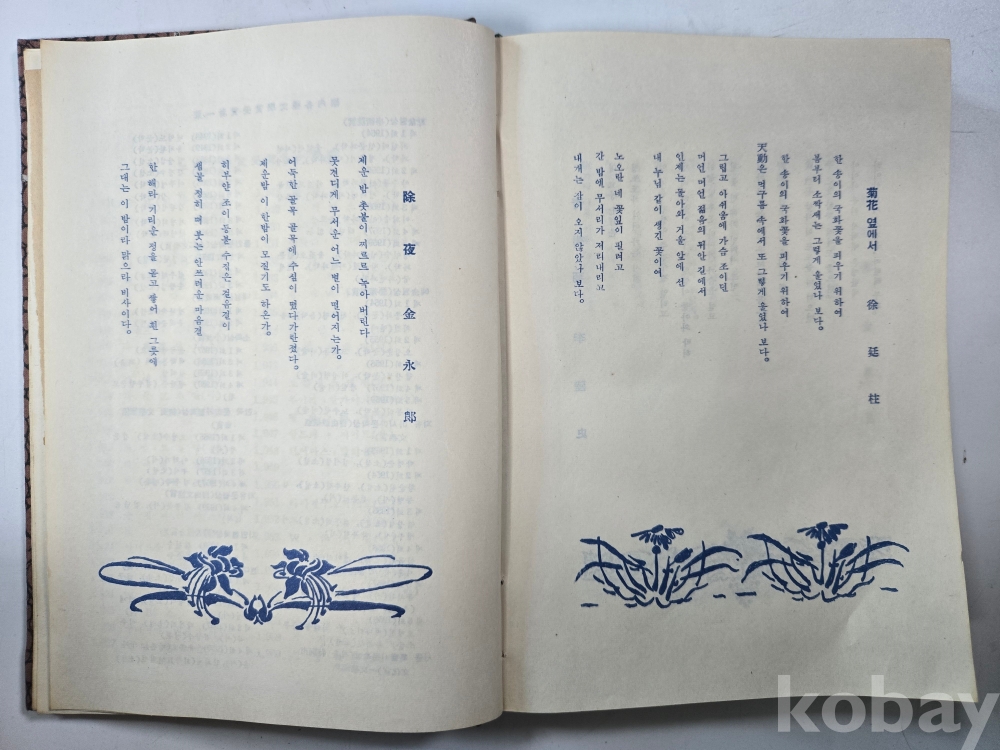 菊花 옆에서 徐廷柱
한 송이의 국화꽃을 피우기 위하여
봄부터 소짝새는 그렇게 울었나 보다。
한 송이의 국화꽃을 피우기 위하여
天動은 먹구름 속에서 또 그렇게 울었나 보다。
그립고 아쉬움에 가슴 조이던
머언 머언 젊음의 뒤안 길에서
인제는 돌아와 거울 앞에 선
내 누님 같이 생긴 꽃이어
노오란 네 꽃잎이 필려고
간 밤엔 무서리가 저리 내리고
내게는 잠이 오지 않았나 보다。
除夜 金永郎
제운 밤 촛불이 찌르르 녹아 버린다
못견디게 무서운 어느 별이 떨어지는가。
어득한 골목 골목에 수심이 떳다가란졌다。
제운밤 이 한밤이 모질기도 하온가。
히부얀 조이 등불 수집은 걸음걸이
샘물 정히 떠 붓는 안쓰러운 마음결
한 해라 기리운 정을 몯고 쌓어 흰 그릇에
그대는 이 밤이라 맑으라 비사이다。
kobay